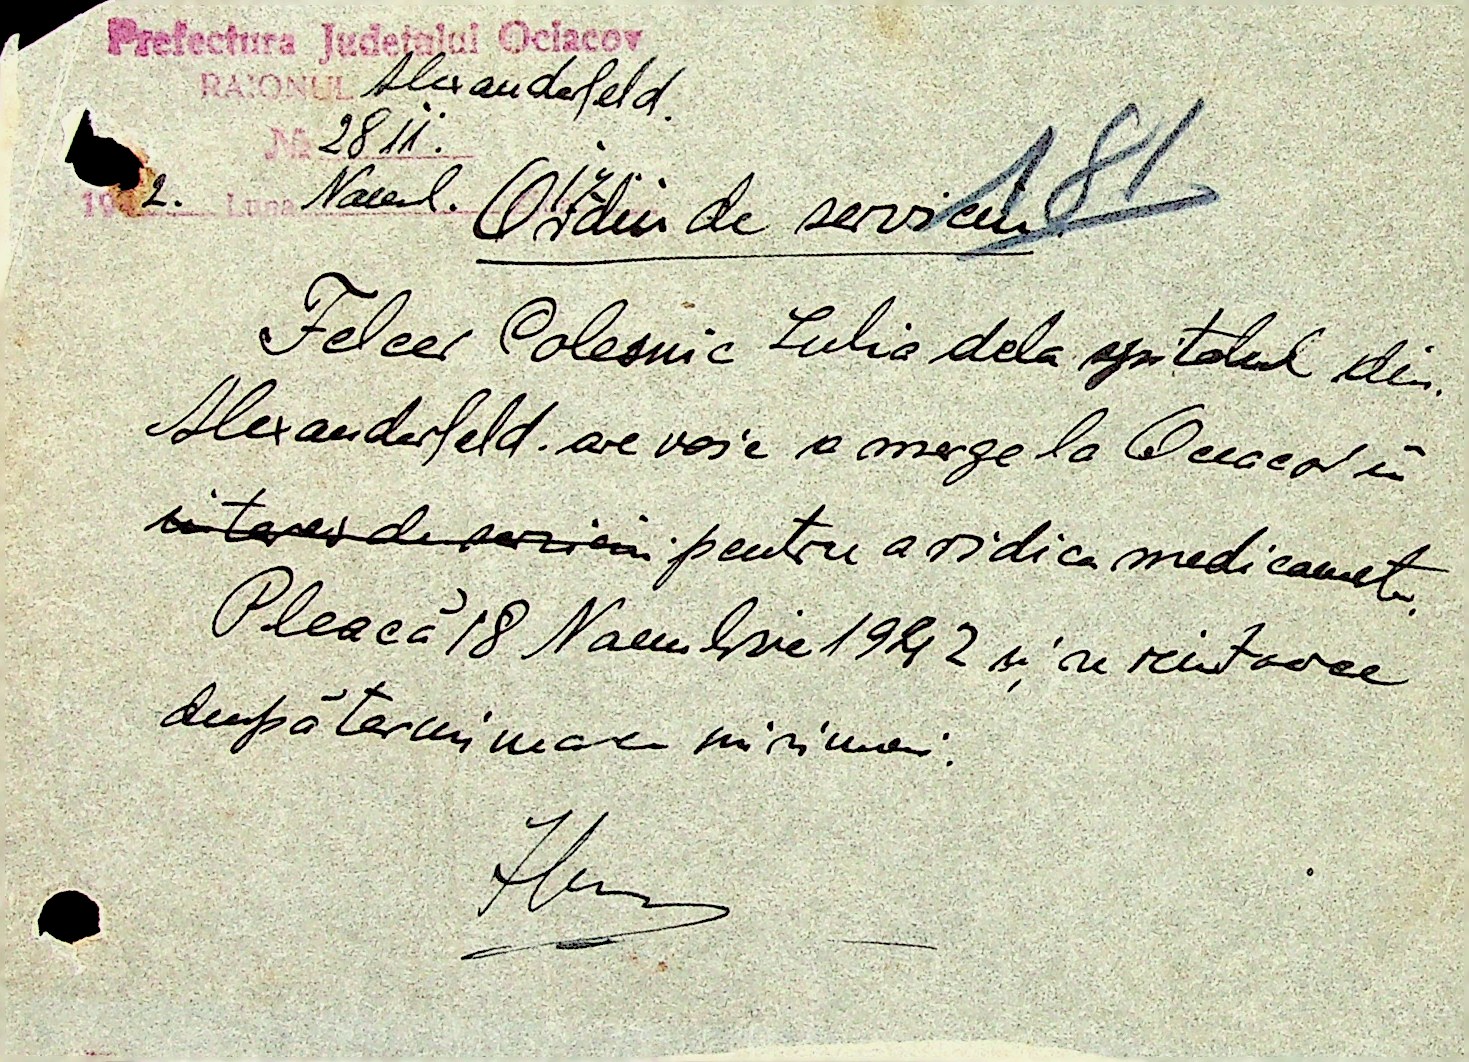 Prefectura Judetului Ociacov
RAIONUL Alexanderfeld.
№ 2811.
1942. Luna Noemb. 17
181
Ordin de serviciu.
Felcer Colesnic Iulia dela spitalul din
Alexanderfeld. are voie a merge la Oceacov in
interes de serviciu pentru a ridica medicamente.
Pleacă 18 Noembrie 1942 și se reintoarce
după terminarea misiunei.